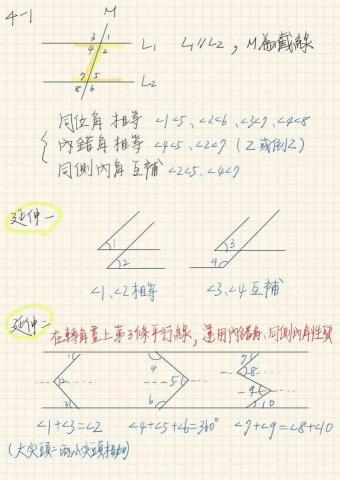 4-1
M
3 1
4 2
L1 L1//L2, M為截線
7 5
8 6
L2
同位角 相等 ∠1∠5、∠2∠6、∠3∠7、∠4∠8
內錯角 相等 ∠4∠5、∠2∠7 (Z或倒Z)
同側內角 互補 ∠2∠5、∠4∠7
延伸一
1
2
3
4
∠1、∠2相等
∠3、∠4互補
延伸二
在轉角畫上第3條平行線, 運用內錯角、同側內角性質
1 4 7
2 5 8
3 6 9
10
∠1+∠3=∠2 ∠4+∠5+∠6=360° ∠7+∠9=∠8+∠10
(大尖頭=兩小尖頭相加)